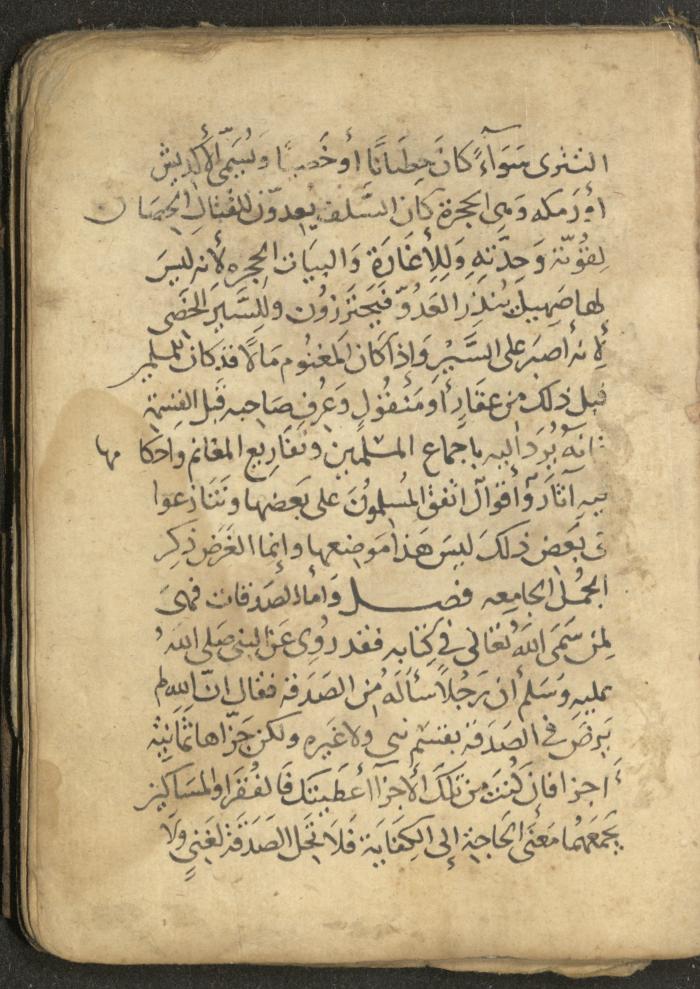 التتري سَوَآءً كانَ حِصَانًا أو خَصيًا وَيُسَمَّى الأكديش
أو رَمكه وَهِى الحجرة كان السَّلف يعدّون للقتال الحصان
لِقُوّتهِ وَحِدَّتهِ وَلِلإغَارَة وَالبيَات الحجره لأنه ليسَ
لها صَهِيلٌ يُنذِر العَدُوّ فيَحترزُون وللسَّير الخَصي
لأِنه أصبَر على السَّيْر وَإذا كانَ المغنوم مَالاً قد كان للمسلمين
قبل ذلك من عقَارٍ أو مَنقُولٍ وَعُرِفَ صَاحبه قبل القسمة
فانه يُرَد اليه باجماع المسْلمين وتفَاريع المغانم واحكامها
فيهِ آثَارٌ وَأقوَالٌ اتفق المُسلمونَ على بَعضها وتَنَازعوا
فى بَعض ذلكَ ليسَ هَذا مَوضعها وإنما الغَرَض ذكر
الجُمَل الجامعه فصل وَأما الصَدَقات فهىَ
لِمَن سَمَّى اللهُ تعَالى فى كِتابه فقد رُوِى عَن النبى صَلى الله
عليه وَسَلم أن رَجُلاً سَألَهُ مِن الصَدَقة فقال إنّ الله لم
يَرضَ فى الصَدَقة بقسْمِ نبى ولا غَيره ولكن جَزّاها ثمَانِيَة
أجزا فان كُنتَ مِن تلكَ الأجزآ أعطَيتك فالفُقَرا والمسَاكين
يجمَعهُما مَعْنَى الحَاجة إلى الكِفَايَة فَلا تحَل الصَدَقَة لغَنيٍ ولاَ